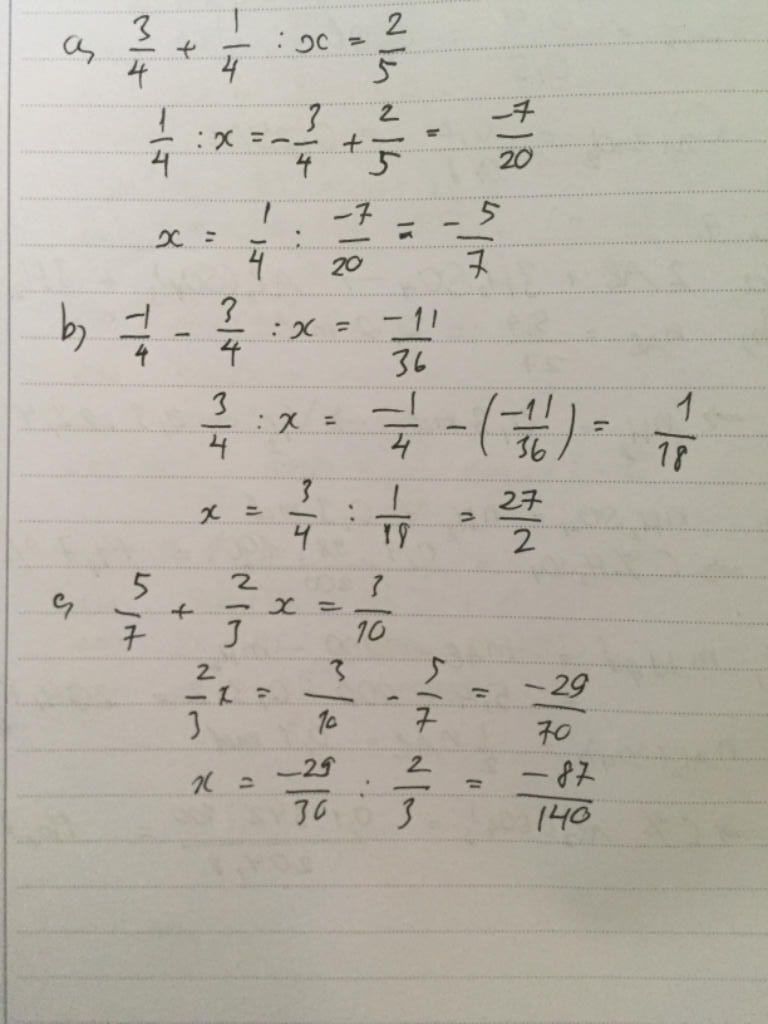 a, 3/4 + 1/4 : x = 2/5
1/4 : x = -3/4 + 2/5 = -7/20
x = 1/4 : -7/20 = -5/7
b, -1/4 - 3/4 : x = -11/36
3/4 : x = -1/4 - (-11/36) = 1/18
x = 3/4 : 1/18 = 27/2
c, 5/7 + 2/3 x = 3/10
2/3 x = 3/10 - 5/7 = -29/70
x = -29/30 : 2/3 = -87/140